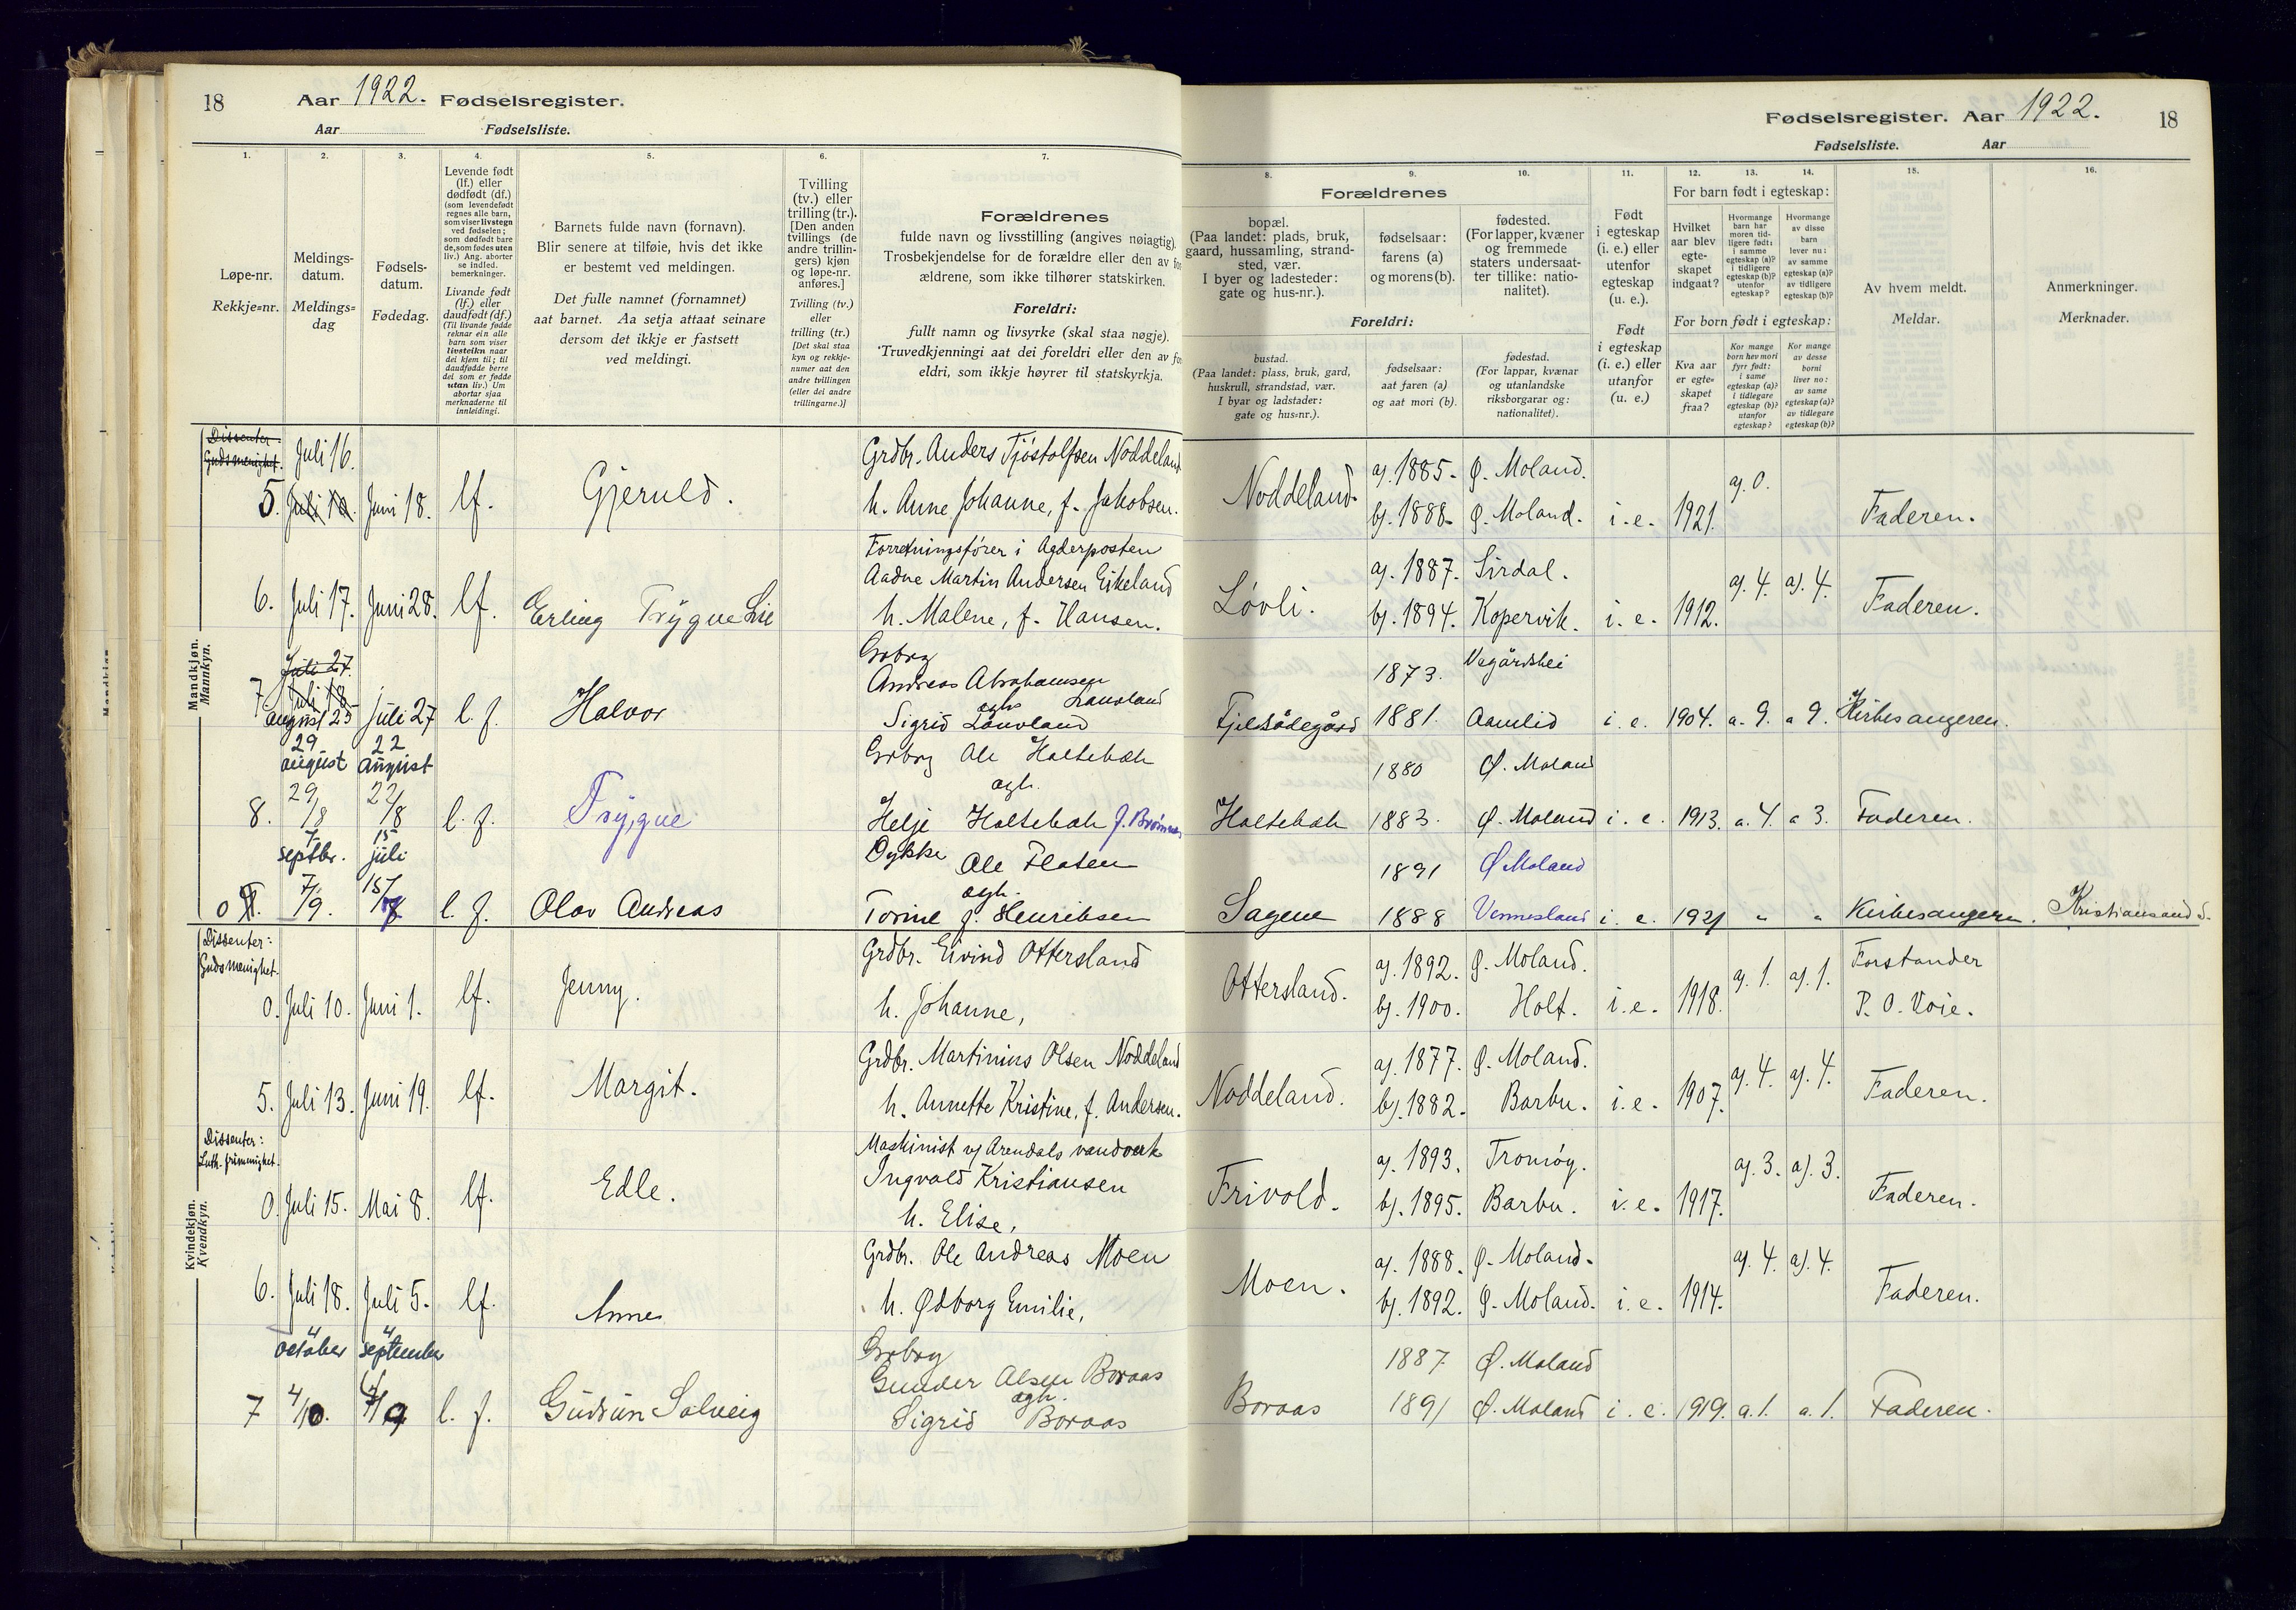 18 Aar 1922. Fødselsregister.
Aar Fødselsliste.
1. 2. 3. 4. 5. 6. 7.
Løpe-nr.
Rekkje=nr.
Meldings-
datum.
Meldings=
dag
Fødsels-
datum.
Fødedag.
Levende født
(lf.) eller
dødfødt (df.)
(som levendefødt
regnes alle barn,
som viser livstegn
ved fødselen;
som dødfødt bare
de, som fødes uten
liv.) Ang. aborter
se indled.
bemerkninger.
Livande født
(lf.) eller
daudfødt (df.)
(Til livande fødde
reknar ein alle
barn som viser
livsteikn naar
dei kjem til; til
daudfødde berre
dei som er fødde
utan liv.) Um
abortar sjaa
merknaderne til
innleidingi.
Barnets fulde navn (fornavn).
Blir senere at tilføie, hvis det ikke
er bestemt ved meldingen.
Det fulle namnet (fornamnet)
aat barnet. Aa setja attaat seinare
dersom det ikkje er fastsett
ved meldingi.
Tvilling
(tv.) eller
trilling (tr.).
[Den anden
tvillings (de
andre trillin-
gers) kjøn
og løpe-nr.
anføres.]
Tvilling (tv.)
eller
trilling (tr.)
[Det skal staa
kyn og rekkje-
numer aat den
andre tvillingen
(eller dei andre
trillingarne.)]
Forældrenes
fulde navn og livsstilling (angives nøiagtig).
Trosbekjendelse for de forældre eller den av for
ældrene, som ikke tilhører statskirken.
Foreldri:
fullt namn og livsyrke (skal staa nøgje).
Truvedkjenningi aat dei foreldri eller den av for
eldri, som ikkje høyrer til statskyrkja.
Fødselsregister. Aar 1922. 18
Fødselsliste. Aar
8. 9. 10. 11. 12. 13. 14. 15. 16.
Forældrenes
bopæl.
(Paa landet: plads, bruk,
gaard, hussamling, strand-
sted, vær.
I byer og ladesteder:
gate og hus-nr.).
fødselsaar:
farens (a)
og morens (b).
fødested.
(For lapper, kvæner
og fremmede
staters undersaat-
ter tillike: natio-
nalitet).
Foreldri:
bustad.
(Paa landet: plass, bruk, gard,
huskrull, strandstad, vær.
I byar og ladstader:
gate og hus=nr.).
fødselsaar:
aat faren (a)
og aat mori (b).
fødestad.
(For lappar, kvænar
og utanlandske
riksborgarar og:
nationalitet).
Født
i egteskap
(i. e.) eller
utenfor
egteskap
(u. e.).
Født
i egteskap
(i. e.) eller
utanfor
(u. e.)
For barn født i egteskap:
Hvilket
aar blev
egte-
skapet
indgaat?
Hvormange
barn har
moren tid-
ligere født:
i samme
egteskap (a)?
i tidligere
egteskap (b)?
utenfor
egteskap?
Hvormange
av disse
barn
lever nu:
av samme
egteskap (a)?
av tidligere
egteskap (b)?
For born født i egteskap:
Kva aar
er egte=
skapet
fraa?
Kor mange
born hev mori
fyrr født:
i same
egteskap (a)?
i tidlegare
egteskap (b)?
utanfor
egteskap?
Kor mange
av desse
borni
liver no:
av same
egteskap (a)?
av tidlegare
egteskap (b)?
Av hvem meldt.
Meldar.
Anmerkninger.
Merknader.
Mandkjøn.
Mannkyn.
Dissenter.
Gudsmenighet.
Juli 16.
Grdbr. Anders Tjøstolfsen Noddeland a). 1885. Ø. Moland. a). 0.
5. Juli 10. Juni 18. lf. Gjeruld. h. Anne Johanne, f. Jakobsen. Noddeland. b). 1888. Ø. Moland. i. e. 1921. Faderen.
Forretningsfører i Agderposten
Aadne Martin Andersen Eikeland a). 1887. Sirdal. a). 4. a). 4.
6. Juli 17. Juni 28. lf. Erling Trygve h. Malene, f. Hansen. Løvli. b). 1894. Kopervik. i. e. 1912. Faderen.
Juli 27.
Juli 18
Andreas Abrahamsen Lauvland 1873. Vegårdshei
7 august 25 juli 27 l. f. Halvor ogh. Sigrid Lauvland 1881. Aamlid i. e. 1904. a. 9. a 9. Kirkesangeren.
29 august 22 august
Ole Holtebæk ogh. 1880 Ø. Moland
8. 29/8 22/8 l. f. Trygve Helje Holtebæk Holtebæk 1883. Ø. Moland i. e. 1913. a. 4. a 3. Faderen.
7 septbr. 15 juli
Ole Flaten ogh. 1891 Ø Moland
0 7/9. 15/7 l. f. Olav Andreas Torine f. Henriksen Sagene 1888 Vennesland i. e. 1921 " " Kirkesangeren. Kristiansand S.
Kvindekjøn.
Kvendkyn.
Dissenter:
Gudsmenighet.
Grdbr. Eivind Ottersland a). 1892. Ø. Moland. a). 1. a). 1. Forstander
0. Juli 10. Juni 1. lf. Jenny. h. Johanne, Ottersland. b). 1900. Holt. i. e. 1918. P. O. Voie.
Grdbr. Martinius Olsen Noddeland a). 1877. Ø. Moland. a). 4. a). 4.
5. Juli 13. Juni 19. lf. Margit. h. Annette Kristine, f. Andersen. Noddeland. b). 1882. Barbu. i. e. 1907. Faderen.
Dissenter:
Luth. frimenighet.
Maskinist v/ Arendals vandverk
Ingvald Kristiansen a). 1893. Tromøy. a). 3. a). 3.
0. Juli 15. Mai 8. lf. Edle. h. Elise, Frivold. b). 1895. Barbu. i. e. 1917. Faderen.
Grdbr. Ole Andreas Moen a). 1888. Ø. Moland. a). 4. a). 4.
6. Juli 18. Juli 5. lf. Anne h. Ødborg Emilie, Moen. b). 1892. Ø. Moland. i. e. 1914. Faderen.
4 october 4 september
Gunder Olsen Boraas ogh. 1887 Ø. Moland
7 4/10. 4/9 l. f. Gudrun Solveig Sigrid Boraas Boraas 1891 Ø. Moland i. e. 1919. a. 1. a. 1. Faderen.